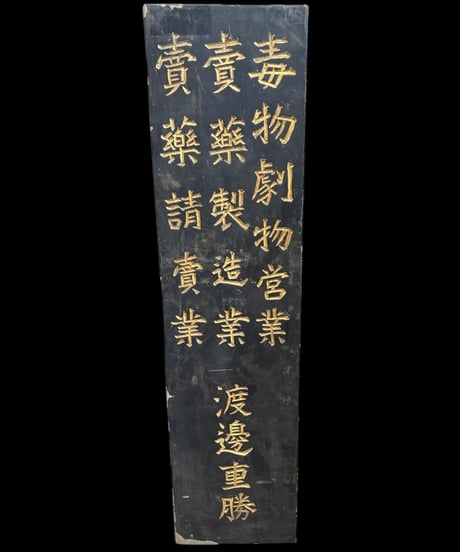 毒物劇物営業
賣藥製造業
賣藥請賣業
渡邊重勝